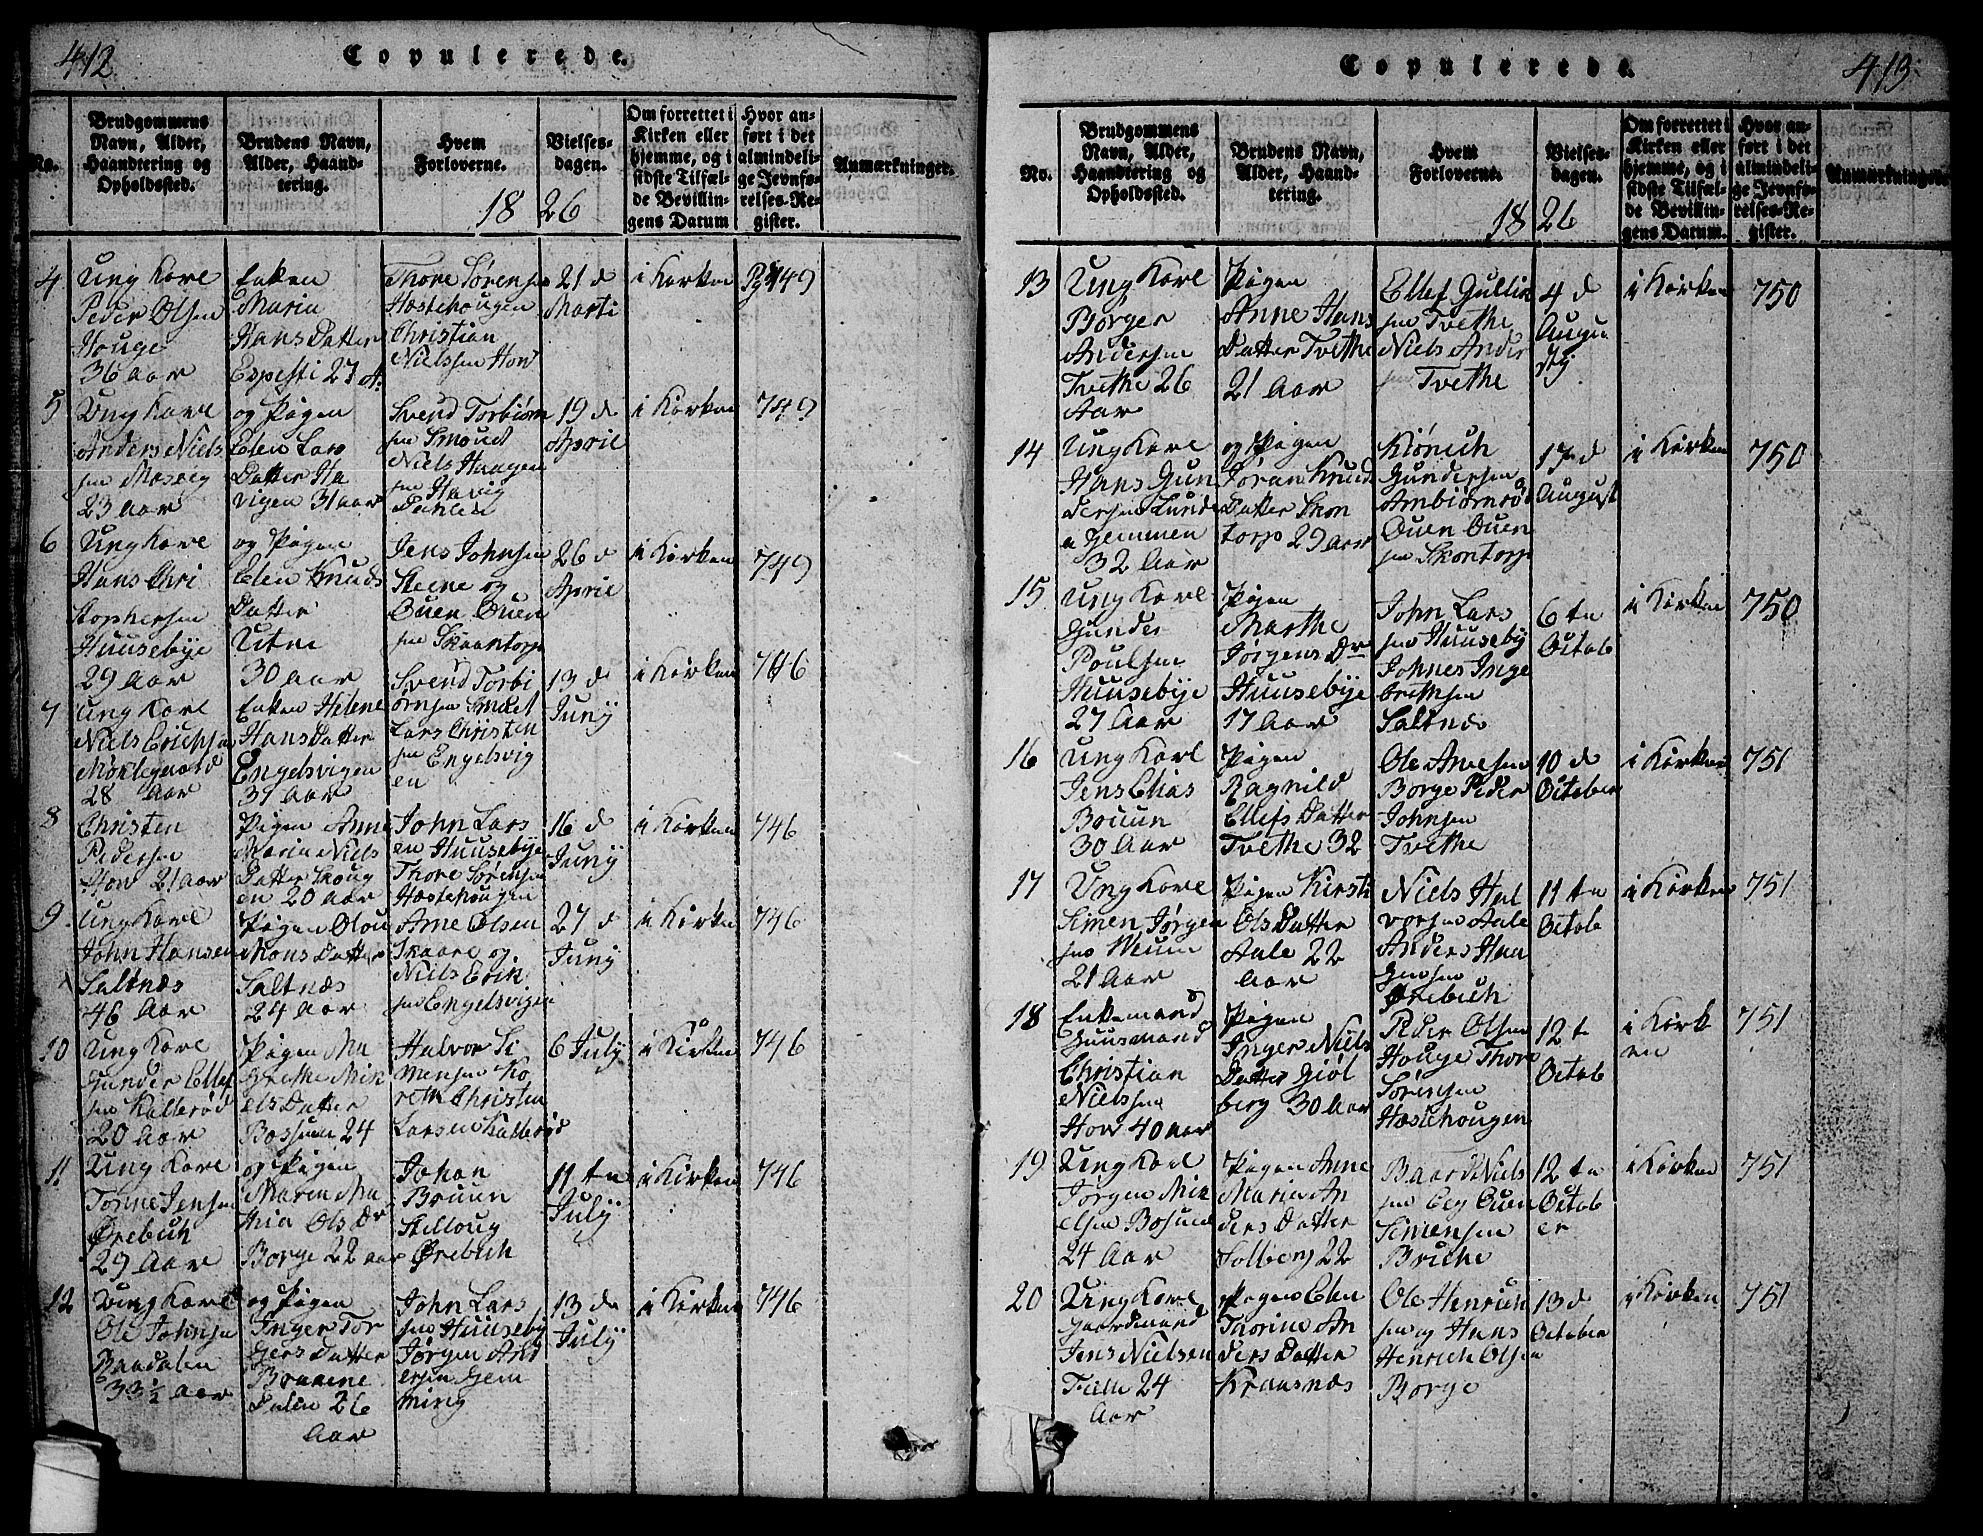 412.
Copulerede.
No.
Brudgommens
Navn, Alder,
Haandtering og
Opholdssted.
Brudens Navn,
Alder, Haand-
tering.
Hvem
Forloverne.
Vielses-
dagen.
Om forrettet i
Kirken eller
hjemme, og i
sidste Tilfæl-
de Bevillin-
gens Datum
Hvor an-
ført i det
almindeli-
ge Jevnfø-
relses-Re-
gister.
Anmærkninger.
1826
4
Ung Karl
Peder Olsen
Houge
36 Aar
Enken
Maria
Hans Datter
Espesti 27 A.
Thore Sørensen
Hæstehougen
Christian
Nielssen How
21 d
Marti
i Kirken
Pg 749
5
Ung Karl
Anders Niels
sen Mosvig
23 Aar
og Pigen
Elen Lars
Datter Ha
vigen 31 aar
Svend Torbiørn
sen Smaut
Niels Haagen
sen Havig
Dahlen
19 d
April
i Kirken
749
6
Ung Karl
Hans Chri
stophersen
Huusebye
29 Aar
og Pigen
Elen Knuds
Datter
Utne
30 aar
Jens Johnsen
Steene og
Ouen Ouen
sen Skaantorp
26 d
April
i Kirken
749
7
Ung Karl
Niels Erichsen
Møklegaard
28 Aar
Enken Helene
Hans Datter
Engelsvigen
37 Aar
Svend Torbi
ørnsen Smaut
Lars Christen
sen Engelsvig
en
13 d
Junÿ
i Kirken
746
8
Christen
Pedersen
How 21 aar
Pigen Anne
Maria Niels
Datter Skoug
en 20 aar
John Lars
en Huusebye
Thore Sørensen
Hæstehougen
16 d
Junÿ
i Kirken
746
9
Ung Karl
John Hansen
Saltnæs
46 Aar
Pigen Olou
Mons Datter
Saltnæs
24 Aar
Arne Olsen
Skaare og
Niels Erik
sen Engelsvigen
27 d
Junÿ
i Kirken
746
10
Ung Karl
Gunder Ellef
sen Kallerød
20 Aar
Pigen Ma
grethe Mik
els Datter
Bossum 24
Halvor Si
mensen Ko
reth Christen
Larsen Kallerød
6 Julÿ
i Kirken
746
11
Ung Karl
Tønne Jensen
Ørebech
29 Aar
og Pigen
Maren Ma
thia Ols Dr
Borge 22 aar
Johan
Bruun
Stilloug
Ørebech
11 tn
Julÿ
i Kirken
746
12
Ung Karl
Ole Johnsen
Baadalen
33½ Aar
og Pigen
Inger Tor
gers Datter
Braaene
Dalen 26
Aar
John Lars
sen Huuseby
Jørgen And
ersen Gem
ming
13 de
Julÿ
i Kirken
746
413.
Copulerede.
No.
Brudgommens
Navn, Alder,
Haandtering og
Opholdssted.
Brudens Navn,
Alder, Haand-
tering.
Hvem
Forloverne.
Vielses-
dagen.
Om forrettet i
Kirken eller
hjemme, og i
sidste Tilfæl-
de Bevillin-
gens Datum.
Hvor an-
ført i det
almindeli-
ge Jevnfø-
relses-Re-
gister.
Anmærkninger.
1826
13
Ung Karl
Børger
Andersen
Tvethe 26
Aar
Pigen
Anne Hans
Datter Tvethe
21 Aar
Ellef Gullik
sen Tvethe
Niels Ander
sen Tvethe
4 d
Augu
stÿ
i Kirken
750
14
Ung Karl
Hans Gun
dersen Lunde
a Gemmen
32 Aar
og Pigen
Jøran Knud
Datter Skon
torp 29 aar
Kiønich
Gundersen
Ambiørnrød
Ouen Ouen
sen Skontorp
17 d
August
i Kirken
750
15
Ung Karl
Gunder
Poulsen
Huusebye
27 Aar
Pigen
Marthe
Jørgens Dr
Huusebye
17 Aar
John Lars
sen Huuseby
Johnes Inge
brethsen
Saltnæs
6 tn
Octob
i Kirken
750
16
Ung Karl
Jens Elias
Bruun
30 Aar
Pigen
Ragnild
Ellefs Datter
Tvethe 32
Ole Arnesen
Borge Peder
Johnsen
Tvethe
10 d
October
i Kirken
751
17
Ung Karl
Simen Jørgen
sen Meum
21 Aar
Pigen Kirsti
Ols Datter
Aale 22
Aar
Niels Hal
vorsen Aale
Anders Haa
gensen
Ørebech
11 tn
Octob
i Kirken
751
18
Enkemand
Huusmand
Christian
Nielssen
How 40 aar
Pigen
Inger Niels
Datter Giøl
berg 30 Aar
Peder Olsen
Houge Thore
Sørensen
Hæstehougen
12 t
Octob
i Kirk
en
751
19
Ung Karl
Jørgen Mik
elsen Bosum
24 Aar
Pigen Anne
Maria An
ders Datter
Solberg 22
Baard Niels
sen Eeg Ouen
Simensen
Breche
12 tn
Octob
er
i Kirken
751
20
Ung Karl
Gaardmand
Jens Nielsen
Felle 24
Aar
Pigen Elen
Thorine An
ders Datter
Kraasnæs
Ole Henrich
sen og Hans
Henrich Olsen
Borge
13 d
October
i Kirken
751